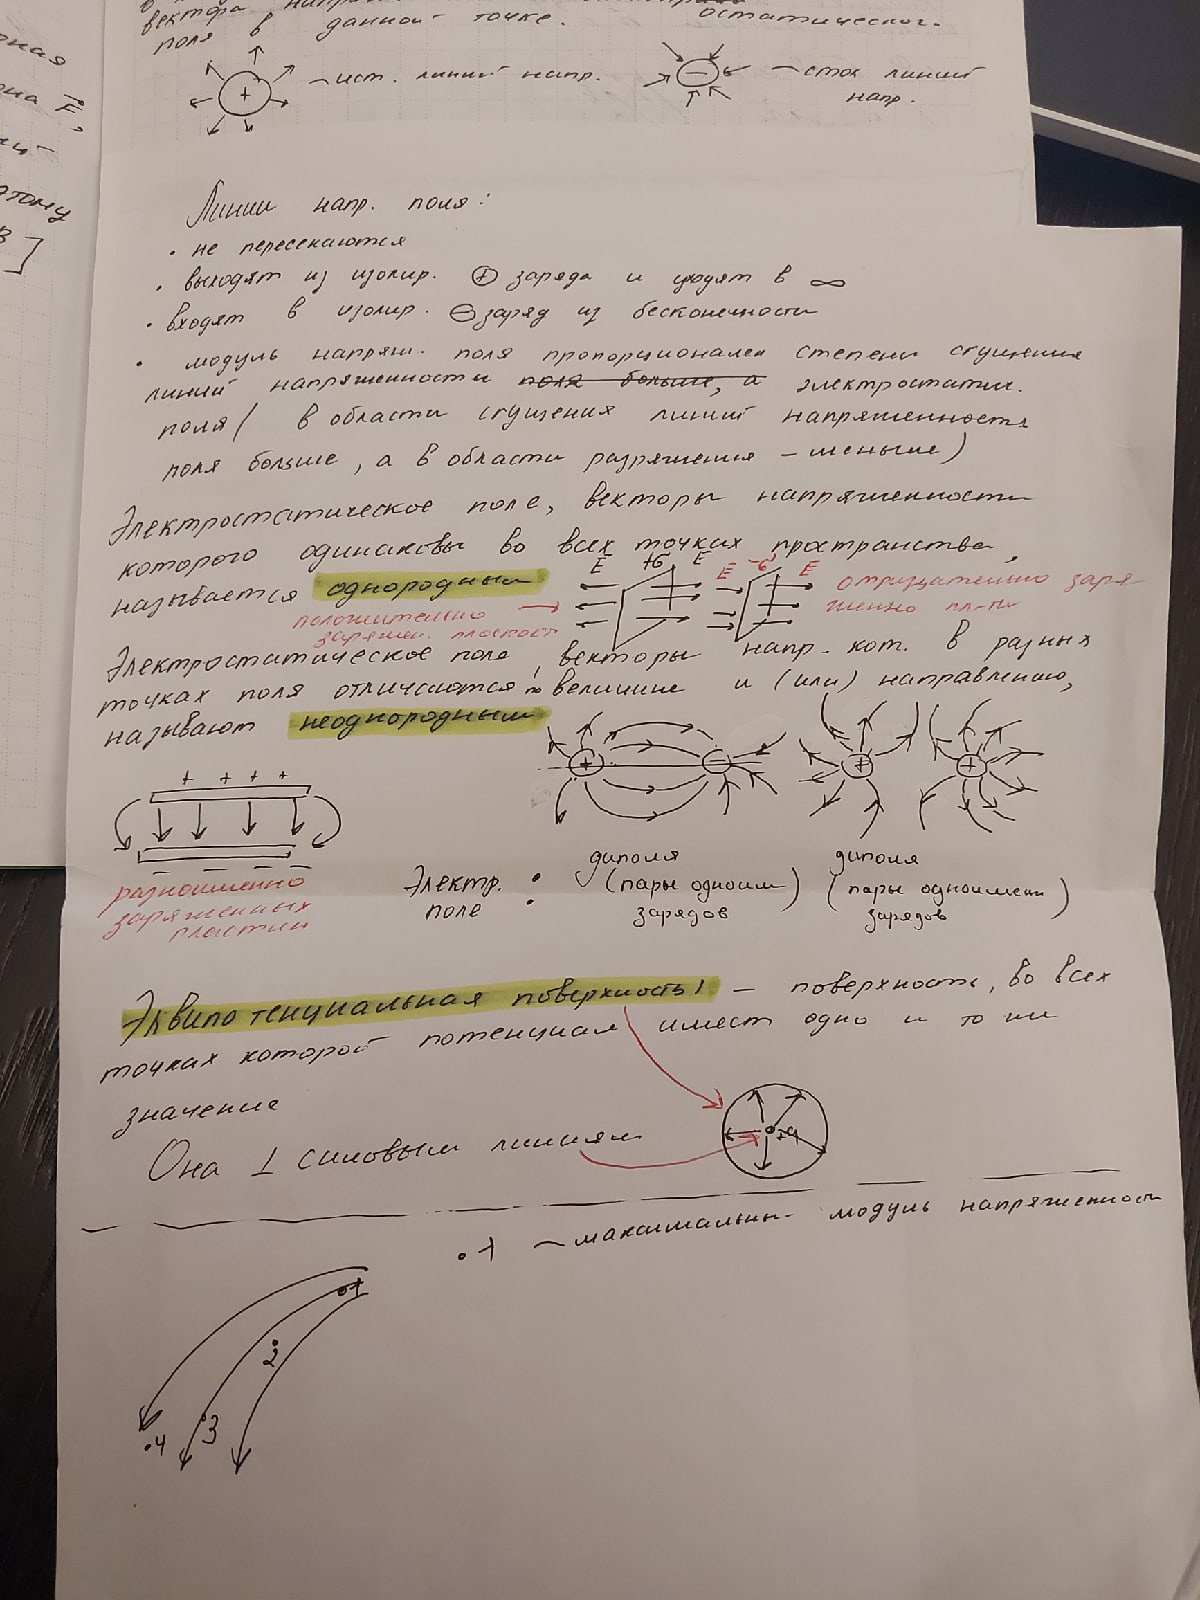 вектора
поля в данной точке. остатическог.
рная
она F,
этому
В ]
+ – ист. линий напр.
– – сток линий
напр.
Линии напр. поля:
• не пересекаются
• выходят из изолир. ⊕ заряда и уходят в ∞
• входят в изолир. ⊖ заряд из бесконечности
• модуль напряж. поля пропорционален степени сгущения
линий напряженности поля больше, а электростатич.
поля ( в области сгущения линий напряженность
поля больше, а в области разряжения – меньше)
Электростатическое поле, векторы напряженности
которого одинаковы во всех точках пространства,
называется однородным
E +б E E -б E
отрицательно заря
женно пл-ти
положительно
заряжен. пластост
Электростатическое поле, векторы напр. кот. в разных
точках поля отличаются по величине и (или) направлению,
называют неоднородным
+ – + +
+ + + +
– – –
разноименно
заряженных
пластин
Электр.
поле
диполя
(пары одноим)
зарядов
диполя
(пары одноимен)
зарядов
Эквипотенциальная поверхность! – поверхность, во всех
точках которой потенциал имеет одно и то же
значение
+q
Она ⊥ силовым линиям
• 1 – максимальн. модуль напряженности
1
2
3
4